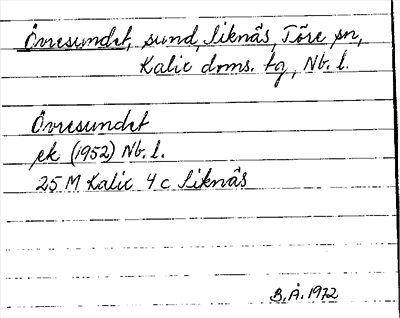 Övresundet, sund, Siknäs, Töre sn,
Kalix doms. tg, Nb. l.
Övresundet
ek (1952) Nb. l.
25 M Kalix 4 c Siknäs
B.Å. 1972